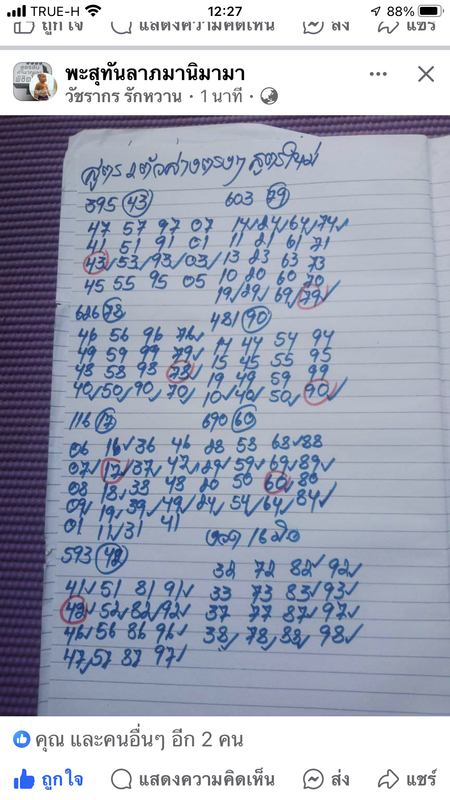 TRUE-H 12:27 88%
ถูกใจ แสดงความคิดเห็น ส่ง แชร์
พะสุทันลาภมานิมามา
วัชรากร รักหวาน · 1 นาที ·
สูตร 2ตัวล่างตรงๆ สูตรใหม่
895 43 603 79
47 57 97 07 14 24 64 74
41 51 91 01 11 21 61 71
43 53 93 03 13 23 63 73
45 55 95 05 10 20 60 70
19 29 69 79
626 73 481 90
46 56 96 76 14 44 54 94
49 59 99 79 15 45 55 95
43 53 93 73 19 49 59 99
40 50 90 70 10 40 50 90
116 17 690 60
06 16 36 46 28 58 68 88
07 17 37 47 29 59 69 89
08 18 38 48 20 50 60 80
09 19 39 49 24 54 64 84
01 11 31 41
593 42 งวด 16 มิย
41 51 81 91 32 72 82 92
42 52 82 92 33 73 83 93
46 56 86 96 37 77 87 97
47 57 87 97 38 78 88 98
คุณ และคนอื่นๆ อีก 2 คน
ถูกใจ แสดงความคิดเห็น ส่ง แชร์